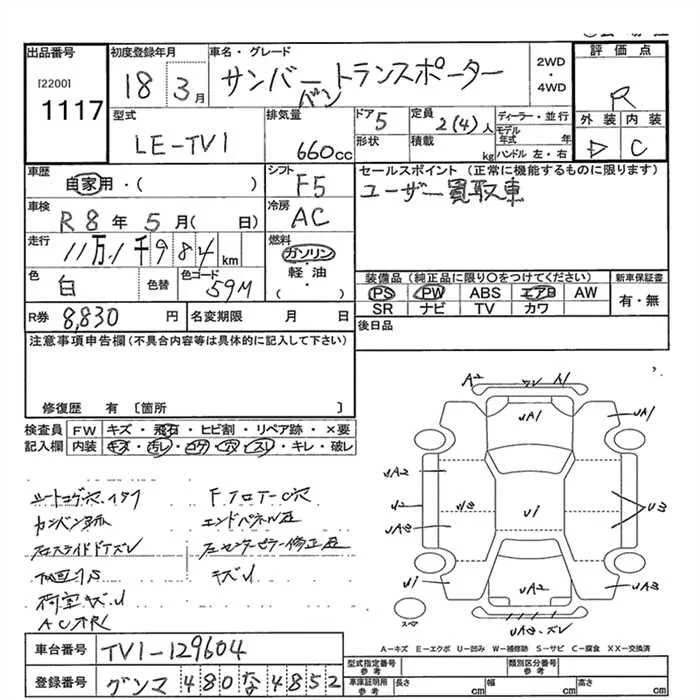 出品番号
[2200]
1117
初度登録年月
18 3月
車名・グレード
サンバートランスポーター
バン
2WD
・
4WD
評価点
R
外装 内装
D C
型式
LE-TV1
排気量
660cc
ドア
5
形状
定員
2(4)人
積載
kg
ディーラー・並行
モデル年式 年
ハンドル 左・右
車歴
自家用・( )
シフト
F5
セールスポイント(正常に機能するものに限ります)
ユーザー買取車
車検
R8年5月( 日)
冷房
AC
走行
11万1千984km
燃料
ガソリン
・
軽・油
( )
色
白
色替
色コード
59M
装備品(純正品に限り○をつけてください)
PS PW ABS エアB AW
SR ナビ TV カワ
新車保証書
有・無
R券 8,830 円
名変期限 月 日
後日品
注意事項申告欄(不具合内容等は具体的に記入して下さい)
修復歴 有〔箇所 〕
検査員記入欄
FW キズ・飛石・ヒビ割・リペア跡・×要
内装 キズ・汚レ・コゲ・穴・スレ・キレ・破レ
A2 A1
UA1 UA1
UA2
U2 UA3
U1 U3
U1 UA2 UA3
スペア
シートコゲ穴、
Fフロアー穴
カンバン跡
エンドパネル凹
右ステイドアズレ
右センターピラー修正歪
下回りS
キズU
荷室キズU
AC不良
A-キズ E-エクボ U-凹み W-補修跡 S-サビ C-腐食 XX-交換済
車台番号
TV1-129604
登録番号
グンマ 480 な 4852
型式指定番号
参考
類別区分番号
参考
車庫証明用
参考
長さ cm 幅 cm 高さ cm